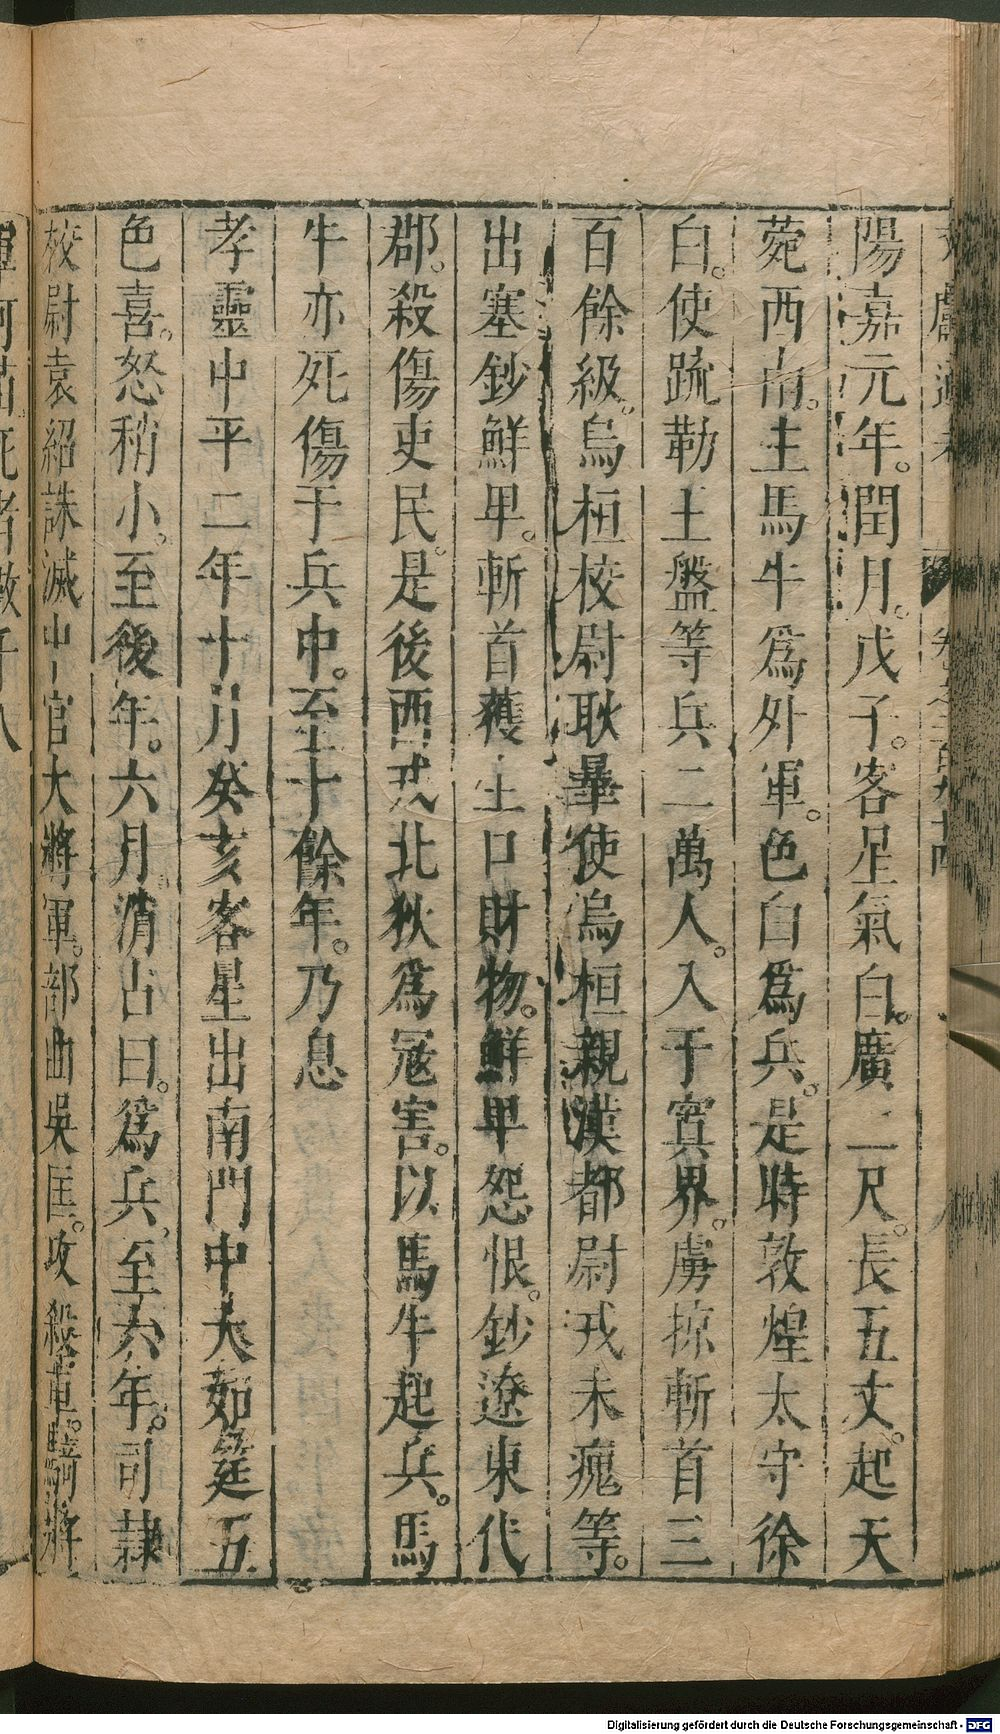 文獻通考 卷之二百九十四
陽嘉元年。閏月。戊子。客星氣白。廣二尺。長五丈。起天
菀西南。主馬牛爲外軍。色白爲兵。是時敦煌太守徐
白。使疏勒王盤等兵二萬人。入于窴界。虜掠斬首三
百餘級。烏桓校尉耿曅使烏桓親漢都尉戎末瘣等。
出塞鈔鮮卑。斬首獲生口財物。鮮卑怨恨。鈔遼東代
郡。殺傷吏民。是後西戎北狄爲冦害。以馬牛起兵。馬
牛亦死傷于兵中。至十餘年。乃息
孝靈中平二年十月癸亥客星出南門中大如筵五
色喜。怒稍小。至後年。六月消占曰。爲兵。至六年。司隷
校尉袁紹誅滅中官大將軍。部曲吳匡。攻殺車。騎將
軍何苗死者數千人
Digitalisierung gefördert durch die Deutsche Forschungsgemeinschaft - DFG